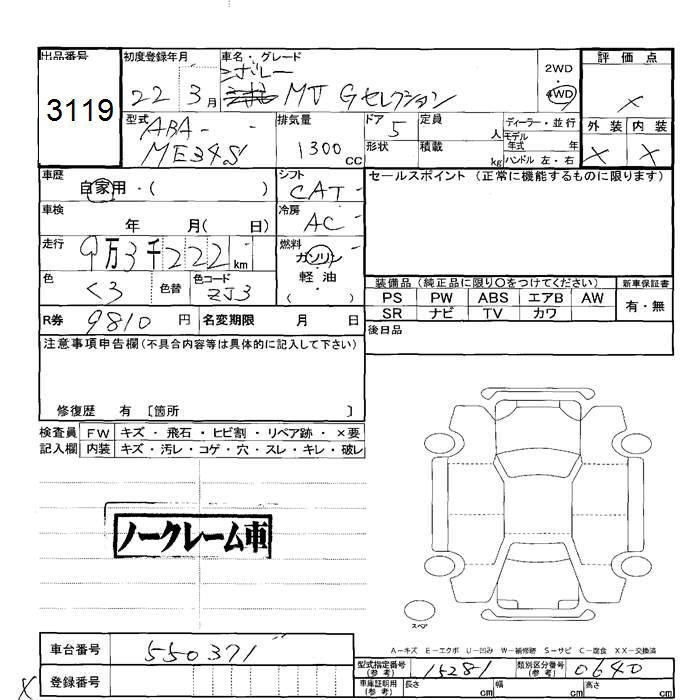 出品番号
3119
初度登録年月
22 3月
車名・グレード
デミオ MJ Gセレクション
2WD
・
4WD
評価点
×
外装 内装
× ×
型式
ABA-
ME34S
排気量
1300 cc
ドア 5
定員 人
形状
積載 kg
ディーラー・並行
モデル年式 年
ハンドル 左・右
車歴
自家用・( )
シフト
CAT
車検
年 月( 日)
冷房
AC
走行
9万3千222km
燃料
ガソリン
・
軽油
( )
色
くろ
色替
色コード
ZJ3
R券 9810 円
名変期限 月 日
セールスポイント (正常に機能するものに限ります)
装備品 (純正品に限り○をつけてください)
新車保証書
PS PW ABS エアB AW
SR ナビ TV カワ
有・無
後日品
注意事項申告欄(不具合内容等は具体的に記入して下さい)
修復歴 有 〔箇所 〕
検査員 FW キズ・飛石・ヒビ割・リペア跡・×要
記入欄 内装 キズ・汚レ・コゲ・穴・スレ・キレ・破レ
ノークレーム車
スペア
A-キズ E-エクボ U-凹み W-補修跡 S-サビ C-腐食 XX-交換済
車台番号 550371
型式指定番号(参考) 15281
類別区分番号(参考) 0640
×
登録番号
車庫証明用(参考) 長さ cm 幅 cm 高さ cm